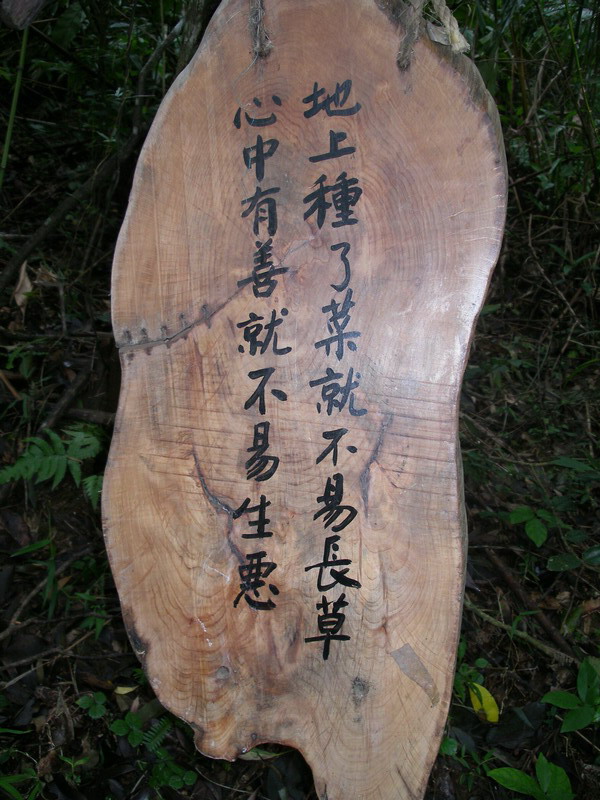 地上種了菜就不易長草
心中有善就不易生惡